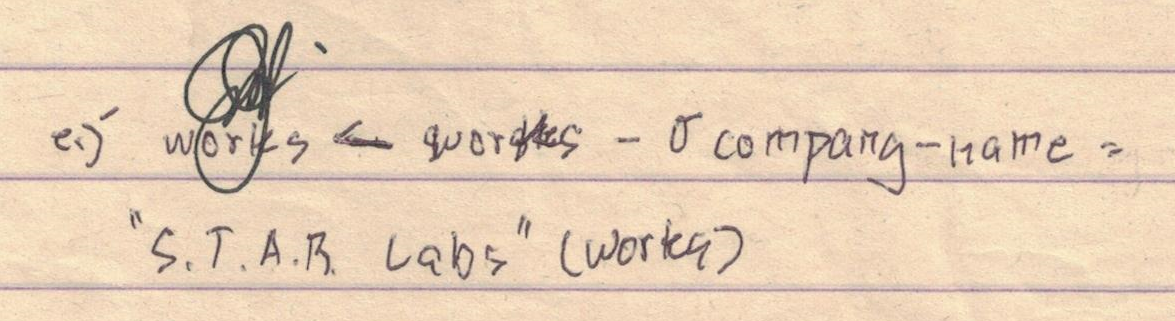 e.) works ← quorks - σ company-name =
"S.T.A.R. Labs" (works)